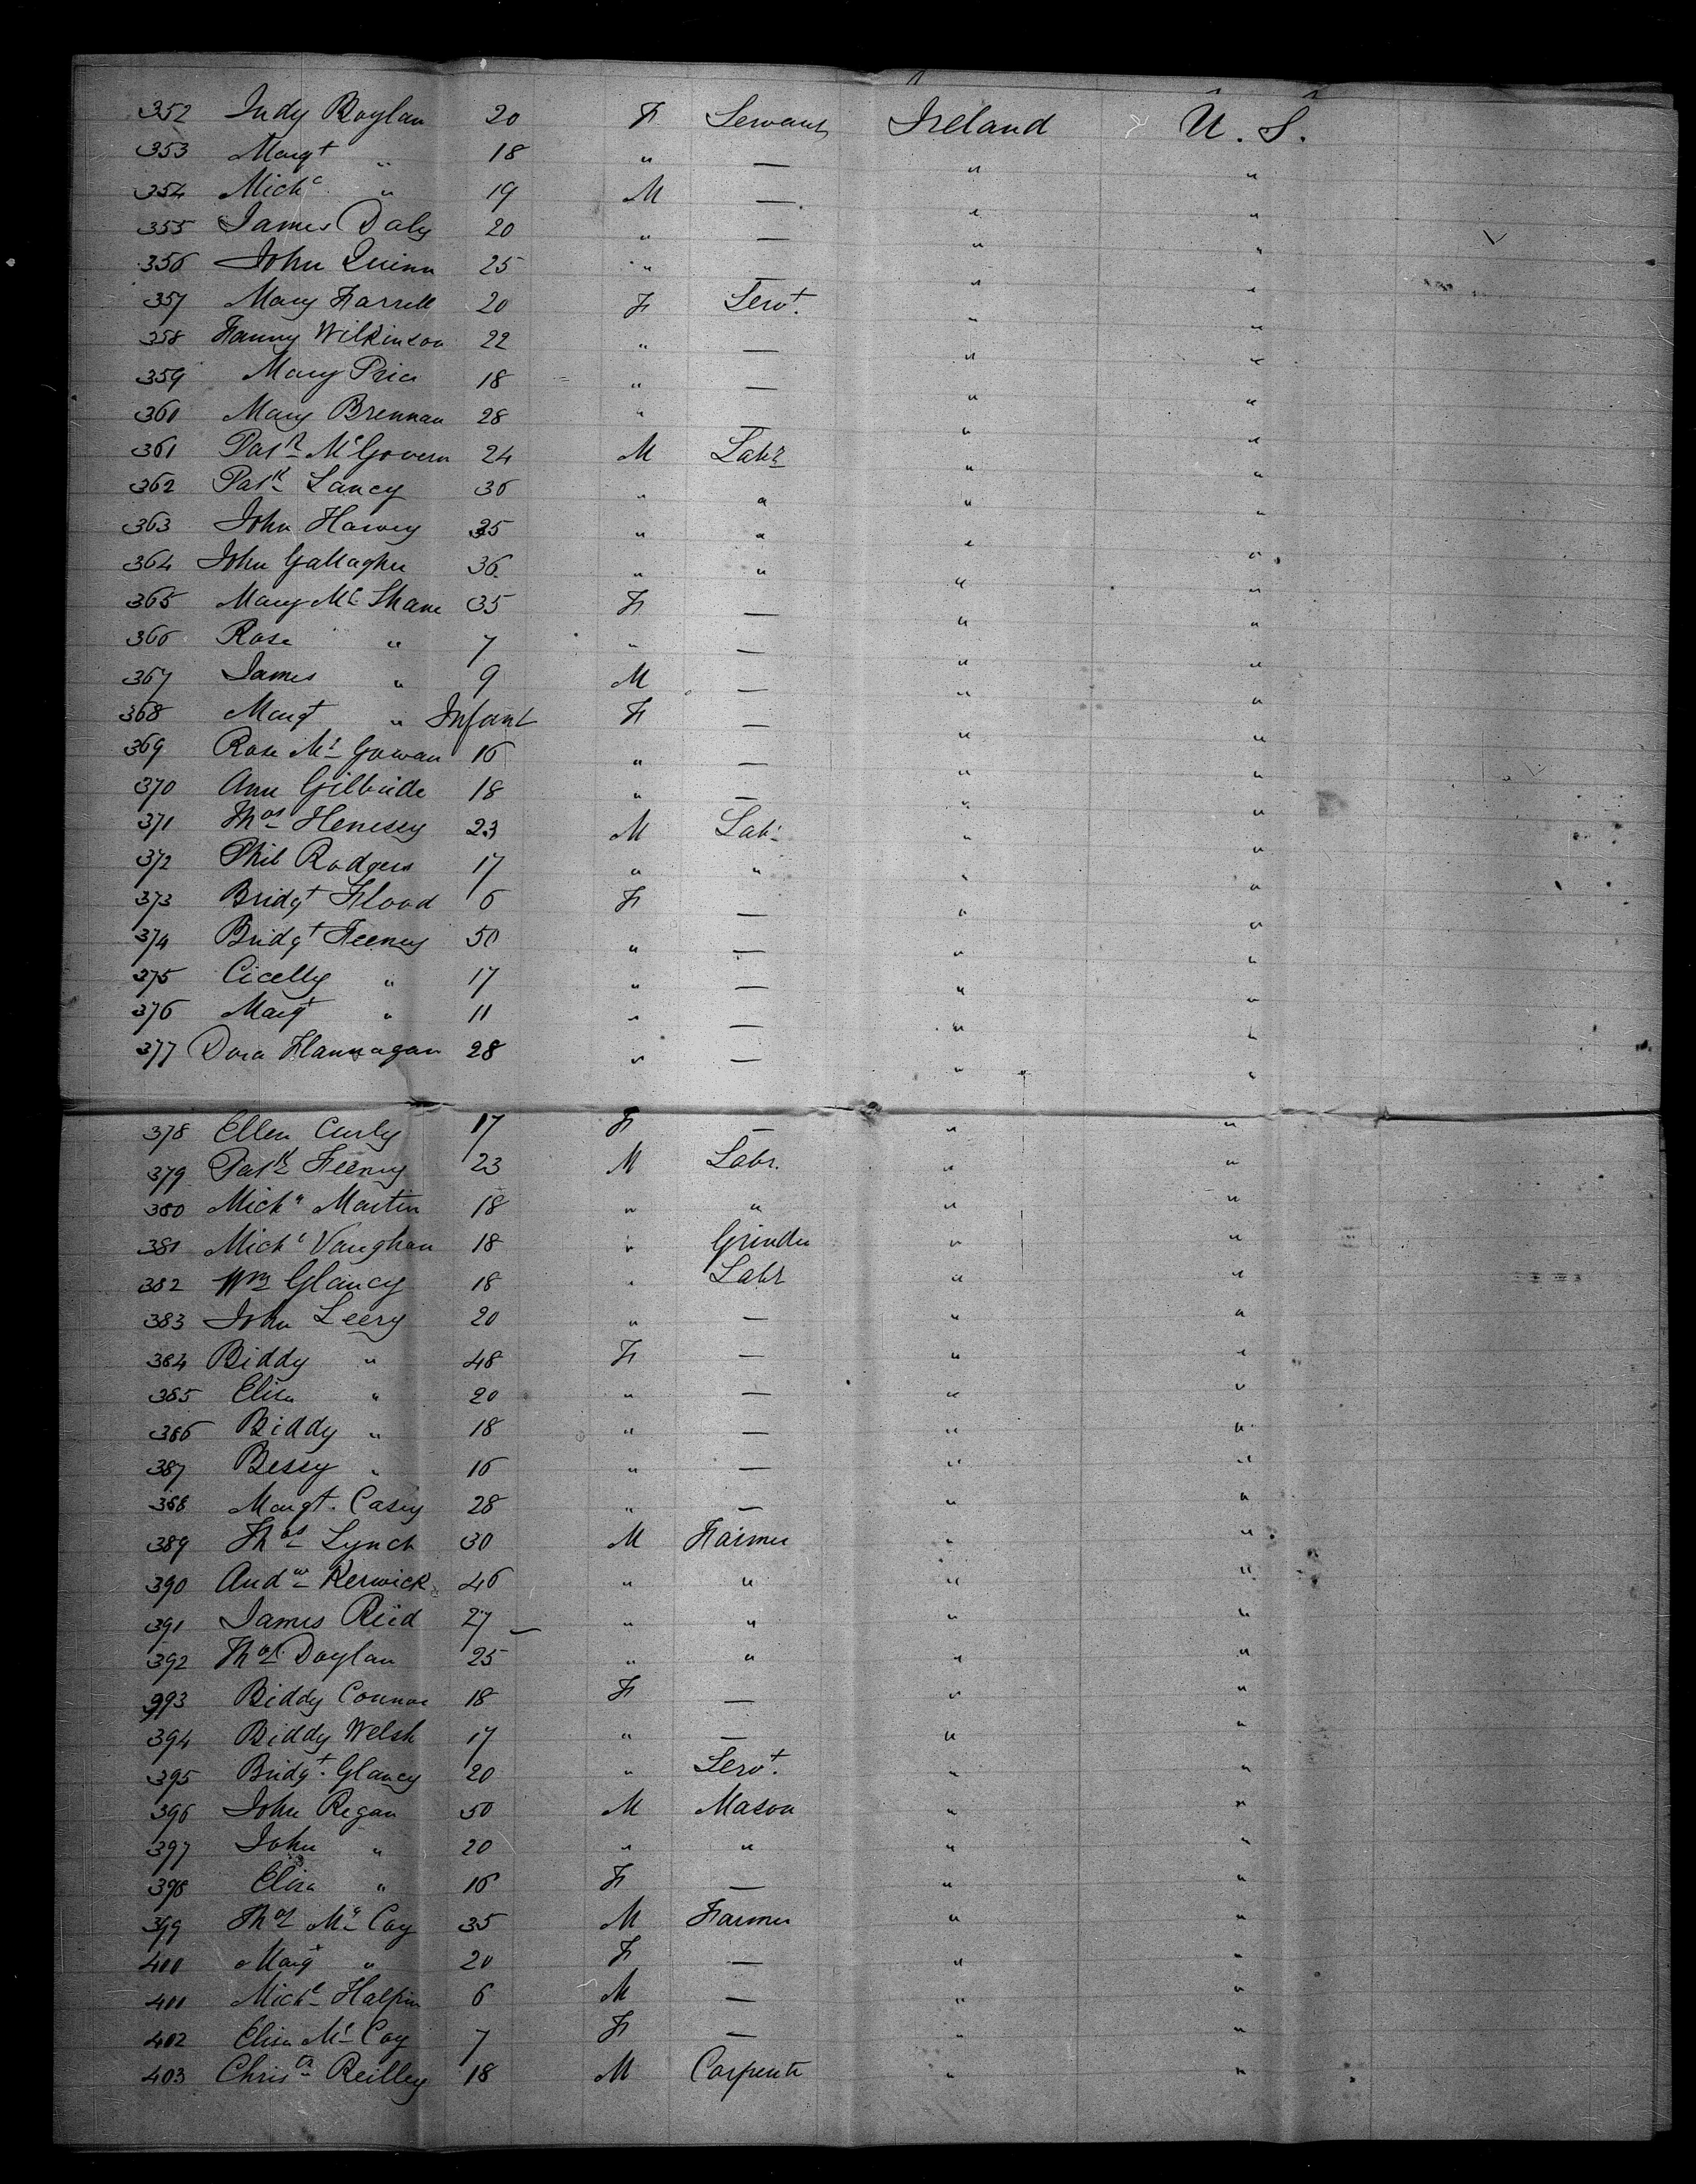 352 Judy Boylan 20 F Servant Ireland U. S.
353 Margt " 18 " — " "
354 Michl " 19 M — " "
355 James Daly 20 " — " "
356 John Quinn 25 " — " "
357 Mary Farrell 20 F Servt. " "
358 Fanny Wilkinson 22 " — " "
359 Mary Price 18 " — " "
360 Mary Brennan 28 " — " "
361 Patk McGovern 24 M Labr " "
362 Patk Lancy 36 " " " "
363 John Harvey 35 " " " "
364 John Gallagher 36 " " " "
365 Mary Mc Shane 35 F — " "
366 Rose " 7 " — " "
367 James " 9 M — " "
368 Margt " Infant F — " "
369 Rose Mc Gowan 16 " — " "
370 Ann Gilbride 18 " — " "
371 Thos Henessy 23 M Labr " "
372 Phil Rodgers 17 " " " "
373 Bridgt Flood 6 F — " "
374 Bridgt Feeney 50 " — " "
375 Cicelly " 17 " — " "
376 Margt " 11 " — " "
377 Dora Flannagan 28 " — " "
378 Ellen Curly 17 F — " "
379 Patk Feeney 23 M Labr. " "
380 Michl Martin 18 " " " "
381 Michl Vaughan 18 " Grinder " "
382 Wm Glancy 18 " Labr " "
383 John Leery 20 " — " "
384 Biddy " 48 F — " "
385 Eliza " 20 " — " "
386 Biddy " 18 " — " "
387 Bessy " 16 " — " "
388 Margt. Casey 28 " — " "
389 Thos Lynch 30 M Farmer " "
390 Andw Kerwick 46 " " " "
391 James Reid 27 " " " "
392 Thos Doylan 25 " " " "
993 Biddy Connor 18 F — " "
394 Biddy Welsh 17 " — " "
395 Bridgt. Glancy 20 " Servt. " "
396 John Regan 50 M Mason " "
397 John " 20 " " " "
398 Eliza " 16 F — " "
399 Thos Mc Coy 35 M Farmer " "
400 Margt " 20 F — " "
401 Michl Halpin 6 M — " "
402 Eliza Mc Coy 7 F — " "
403 Christr Reilley 18 M Carpentr " "